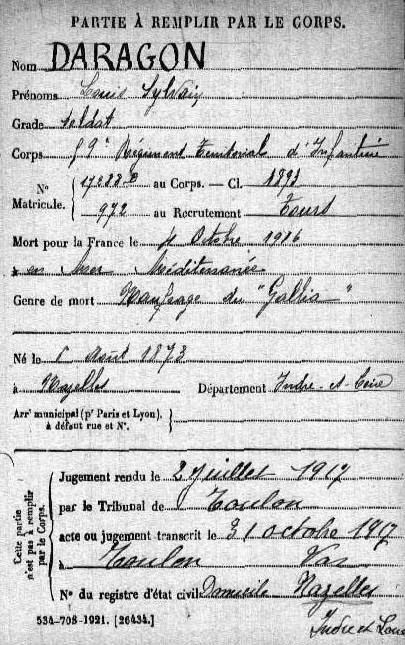 PARTIE À REMPLIR PAR LE CORPS.
Nom DARAGON
Prénoms Louis Sylvain
Grade soldat
Corps 59e Régiment Territorial d'Infanterie
N° Matricule. 17288 au Corps. — Cl. 1893
972 au Recrutement Tours
Mort pour la France le 4 Octobre 1916
à en Mer Méditerranée
Genre de mort Naufrage du "Gallia"
Né le Août 1873
à Nazelles Département Indre-et-Loire
Arrt municipal (pr Paris et Lyon), à défaut rue et N°.
Cette partie n'est pas à remplir par le Corps.
Jugement rendu le 2 juillet 1917
par le Tribunal de Toulon
acte ou jugement transcrit le 31 octobre 1917
à Toulon Var
N° du registre d'état civil Domicile Nazelles
534-708-1921. [26434.] Indre et Loire